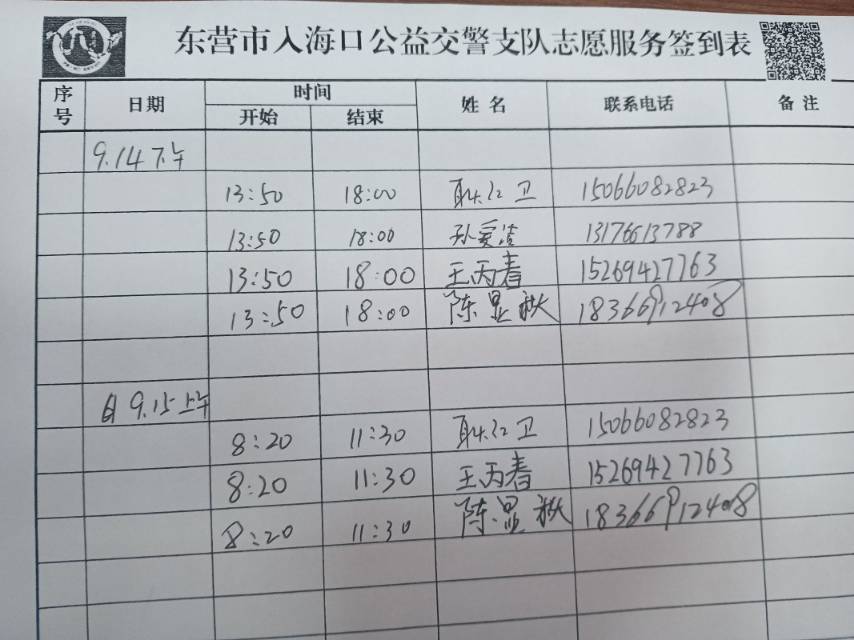 东营市入海口公益交警支队志愿服务签到表
序号 日期 时间 姓名 联系电话 备注
开始 结束
9.14下午
13:50 18:00 耿红卫 15066082823
13:50 18:00 孙爱洁 13176613788
13:50 18:00 王丙春 15269427763
13:50 18:00 陈显秋 18366912408
9.15上午
8:20 11:30 耿红卫 15066082823
8:20 11:30 王丙春 15269427763
8:20 11:30 陈显秋 18366912408